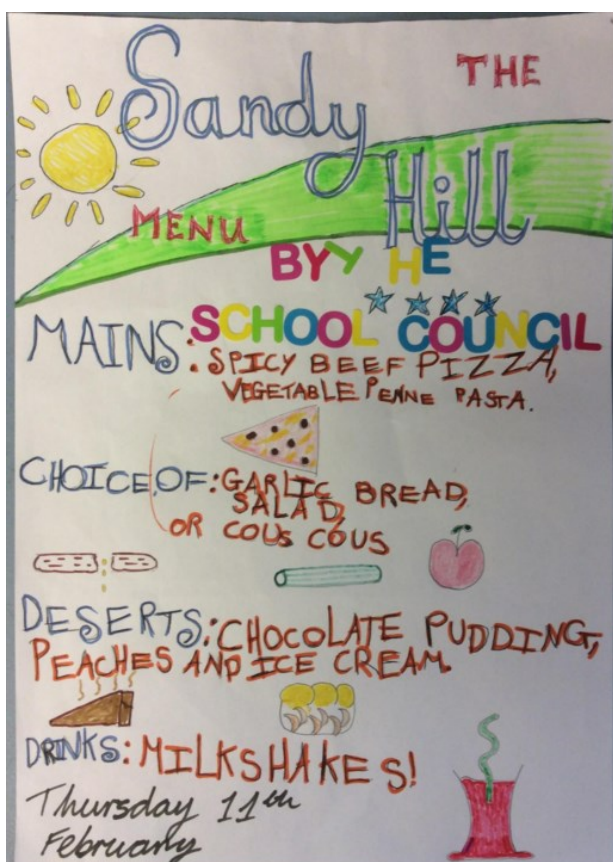 THE
Sandy
Hill
MENU
BYY HE
SCHOOL COUNCIL
MAINS: SPICY BEEF PIZZA,
VEGETABLE PENNE PASTA.
CHOICE OF: GARLIC BREAD,
SALAD,
OR COUS COUS
DESERTS: CHOCOLATE PUDDING,
PEACHES AND ICE CREAM.
DRINKS: MILKSHAKES!
Thursday 11th
February